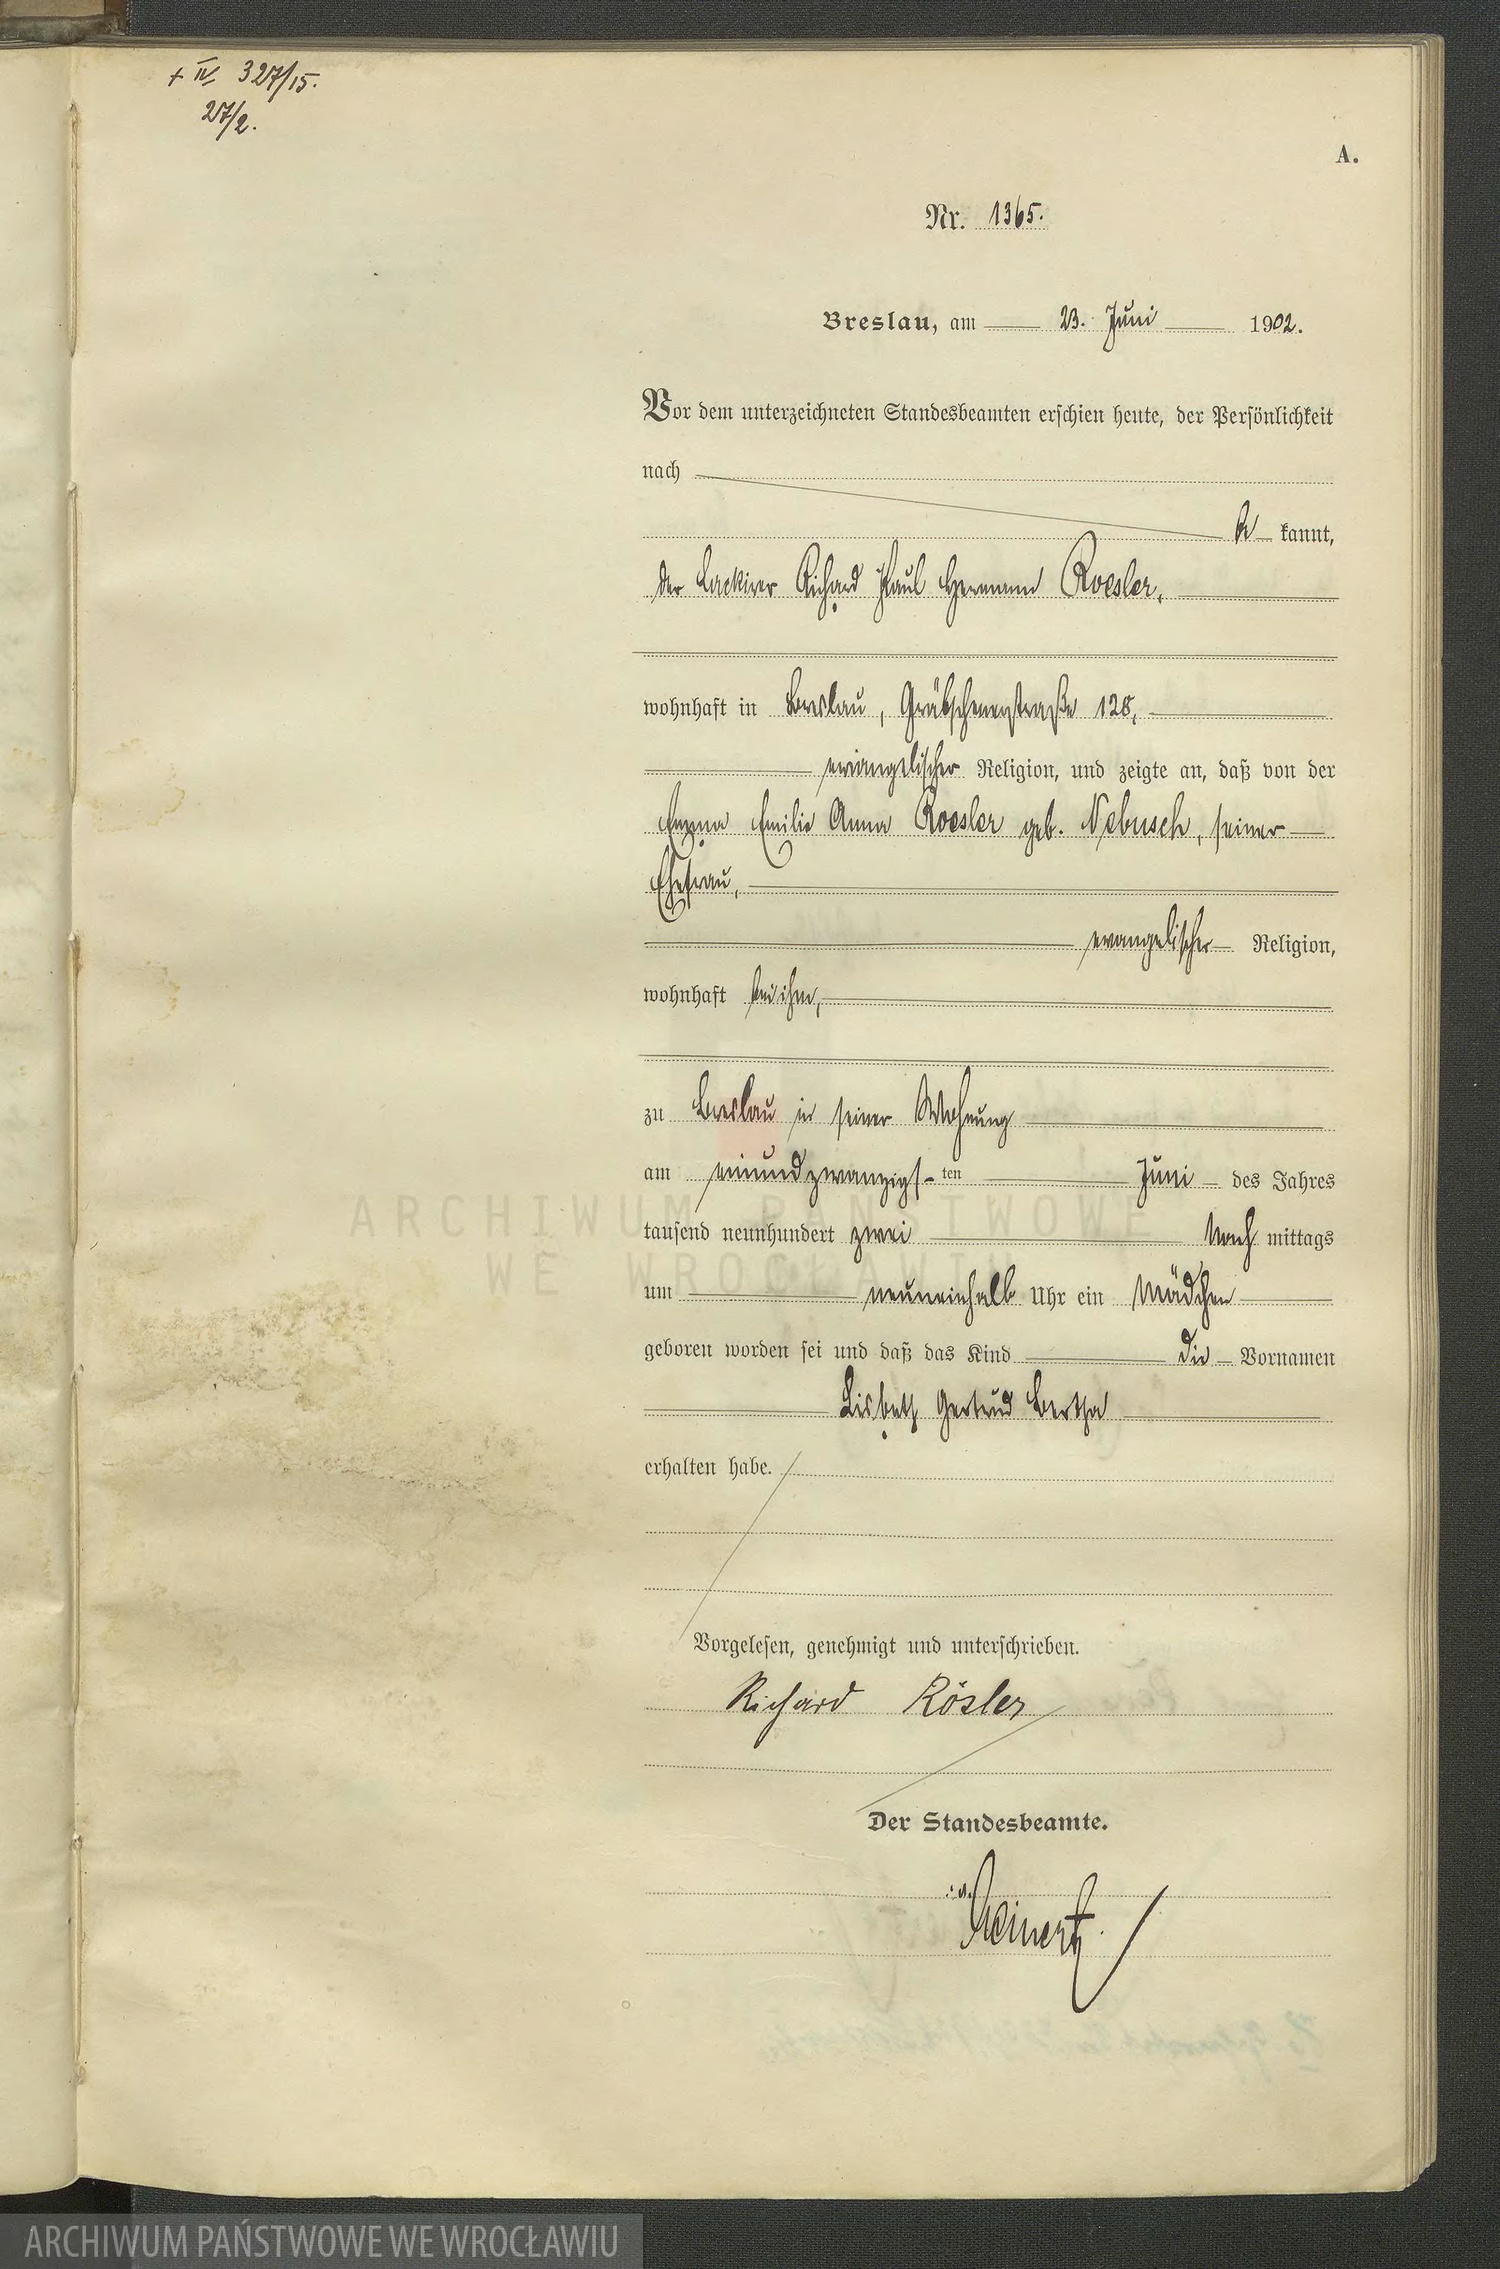 + IV 327/15.
27/2.
A.
Nr. 1365.
Breslau, am 23. Juni 1902.
Vor dem unterzeichneten Standesbeamten erschien heute, der Persönlichkeit
nach
be kannt,
der Lackirer Richard Paul Hermann Roesler,
wohnhaft in Breslau, Gräbschenerstraße 128,
evangelischer Religion, und zeigte an, daß von der
Emma Emilie Anna Roesler geb. Nebusch, seiner
Ehefrau,
evangelischer Religion,
wohnhaft bei ihm,
zu Breslau in seiner Wohnung
am einundzwanzigs-ten Juni des Jahres
tausend neunhundert zwei Nach mittags
um neuneinhalb Uhr ein Mädchen
geboren worden sei und daß das Kind die Vornamen
Lisbeth Gertrud Bertha
erhalten habe.
Vorgelesen, genehmigt und unterschrieben.
Richard Rösler
Der Standesbeamte.
Meinert
ARCHIWUM PAŃSTWOWE
WE WROCŁAWIU
ARCHIWUM PAŃSTWOWE WE WROCŁAWIU